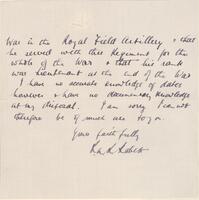 was in the Royal Field Artillery & that
he served with this Regiment for the
whole of the War & that his rank
was Lieutenant at the end of the War
I have no accurate knowledge of dates
however & have no documentary knowledge
at my disposal. I am sorry I cannot
therefore be of much use to you.
Yours faithfully